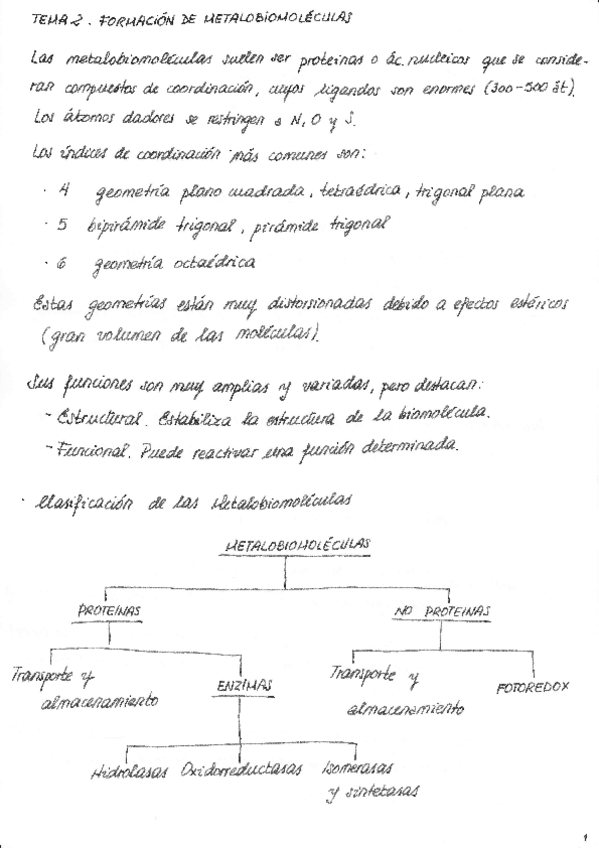 TEMA 2. FORMACIÓN DE METALOBIOMOLÉCULAS
Las metalobiomoléculas suelen ser proteínas o ác. nucleicos que se conside-
ran compuestos de coordinación, cuyos ligandos son enormes (300-500 át).
Los átomos dadores se restringen a N, O y S.
Los índices de coordinación más comunes son:
· 4 geometría plano cuadrada, tetraédrica, trigonal plana
· 5 bipirámide trigonal, pirámide trigonal
· 6 geometría octaédrica
Estas geometrías están muy distorsionadas debido a efectos estéricos
(gran volumen de las moléculas).
Sus funciones son muy amplias y variadas, pero destacan:
- Estructural. Estabiliza la estructura de la biomolécula.
- Funcional. Puede reactivar una función determinada.
· Clasificación de las Metalobiomoléculas
METALOBIOMOLÉCULAS
PROTEINAS NO PROTEINAS
Transporte y almacenamiento ENZIMAS Transporte y almacenamiento FOTOREDOX
Hidrolasas Oxidorreductasas Isomerasas
y sintetasas
1